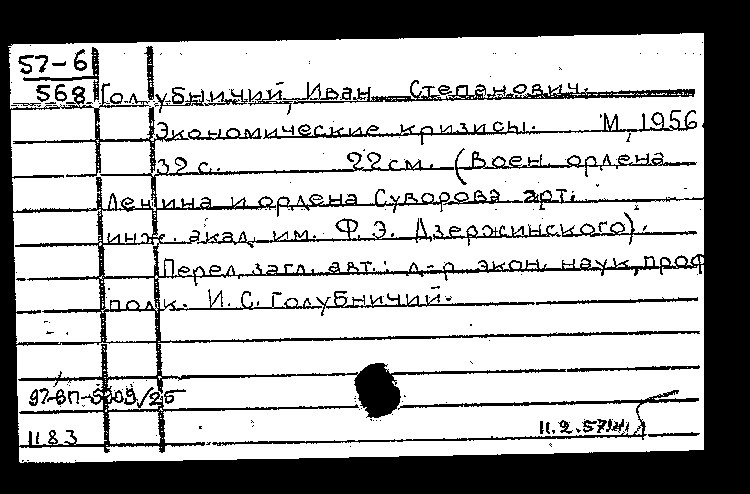 57-6
568 Голубничий, Иван Степанович.
Экономические кризисы. М, 1956.
32 с. 22 см. (Воен. ордена
Ленина и ордена Суворова арт.
инж. акад. им. Ф. Э. Дзержинского).
Перед загл. авт.: д-р экон. наук, проф
полк. И. С. Голубничий.
1183 11.2.57